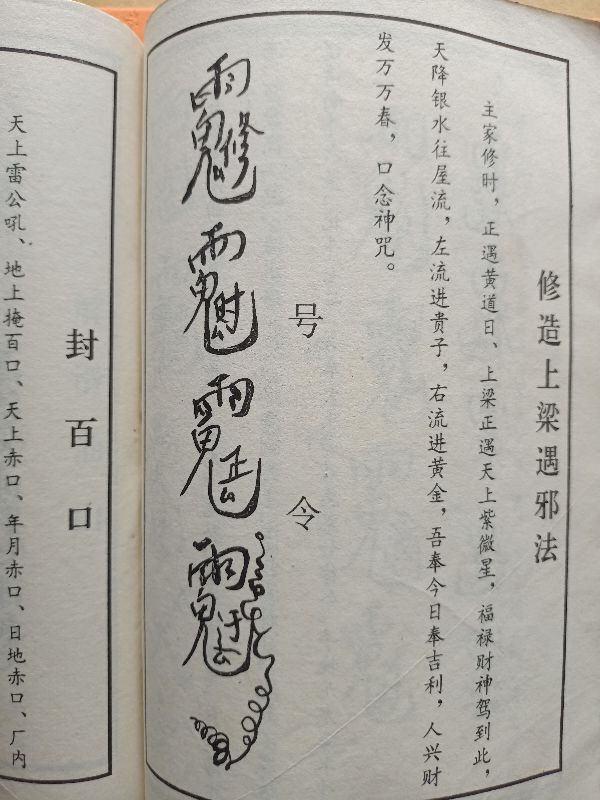 修造上梁遇邪法
主家修时，正遇黄道日、上梁正遇天上紫微星，福禄财神驾到此，
天降银水往屋流，左流进贵子，右流进黄金，吾奉今日奉吉利，人兴财
发万万春，口念神咒。
号令
封百口
天上雷公吼、地上掩百口、天上赤口、年月赤口、日地赤口、厂内